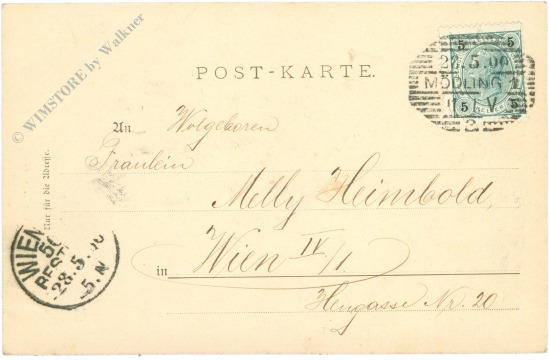 © WIMSTORE by Walkner
5 5
28.5.00
MÖDLING 1
5 V 5
POST-KARTE.
An Wolgeboren
Fräulein
Melly Heimbold,
in Wien IV/1
Heugasse Nr. 20
Nur für die Adresse.
WIEN
BEST
28.5.00
5.N